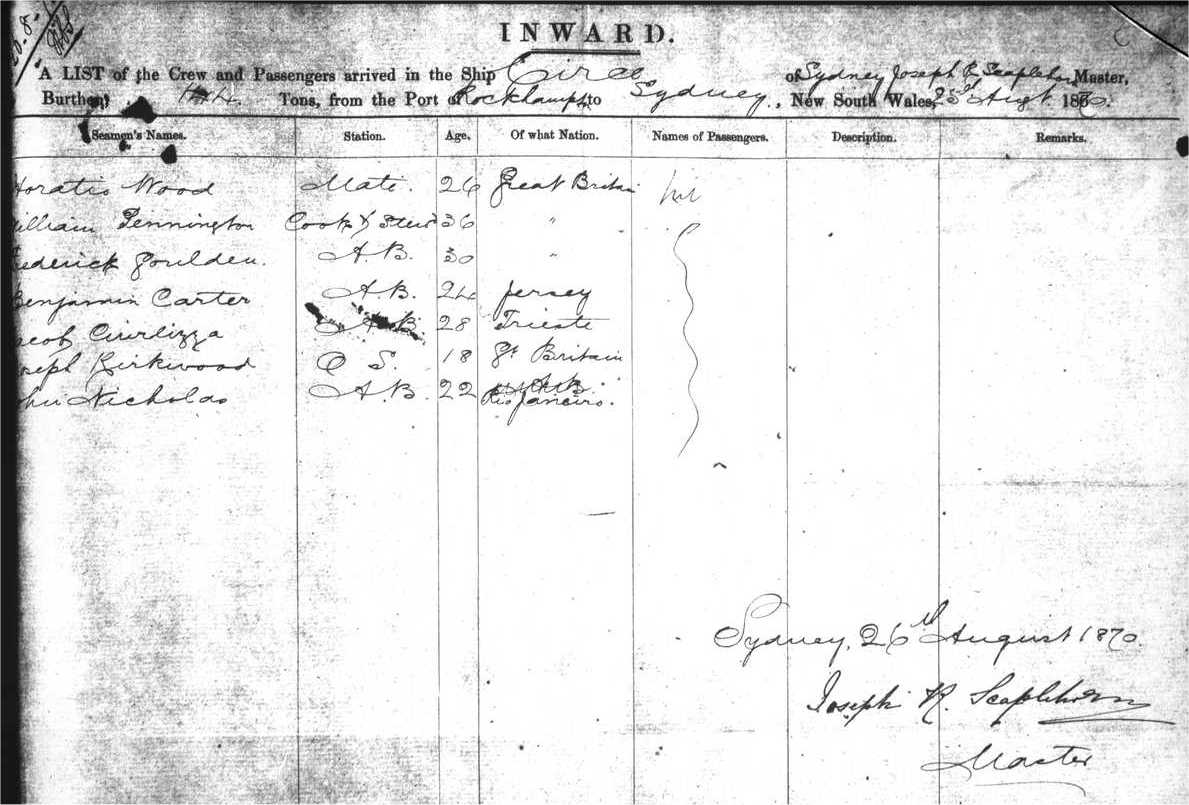 20.8.
INWARD.
A LIST of the Crew and Passengers arrived in the Ship Circe of Sydney Joseph R Scaplehorn Master,
Burthen, 144. Tons, from the Port of Rockhampn to Sydney, New South Wales, 25th Augt. 1870.
Seamen's Names. Station. Age. Of what Nation. Names of Passengers. Description. Remarks.
Horatio Wood Mate. 26 Great Britain nil
William Pennington Cook & Stewd 36 "
Frederick Goulden. A.B. 30 "
Benjamin Carter A.B. 24 Jersey
Jacob Ciurlizza A.B. 28 Trieste
Joseph Kirkwood O S. 18 Gt Britain
John Nicholas A.B. 22 Rio Janeiro.
Sydney, 26th August 1870.
Joseph R. Scaplehorn
Master